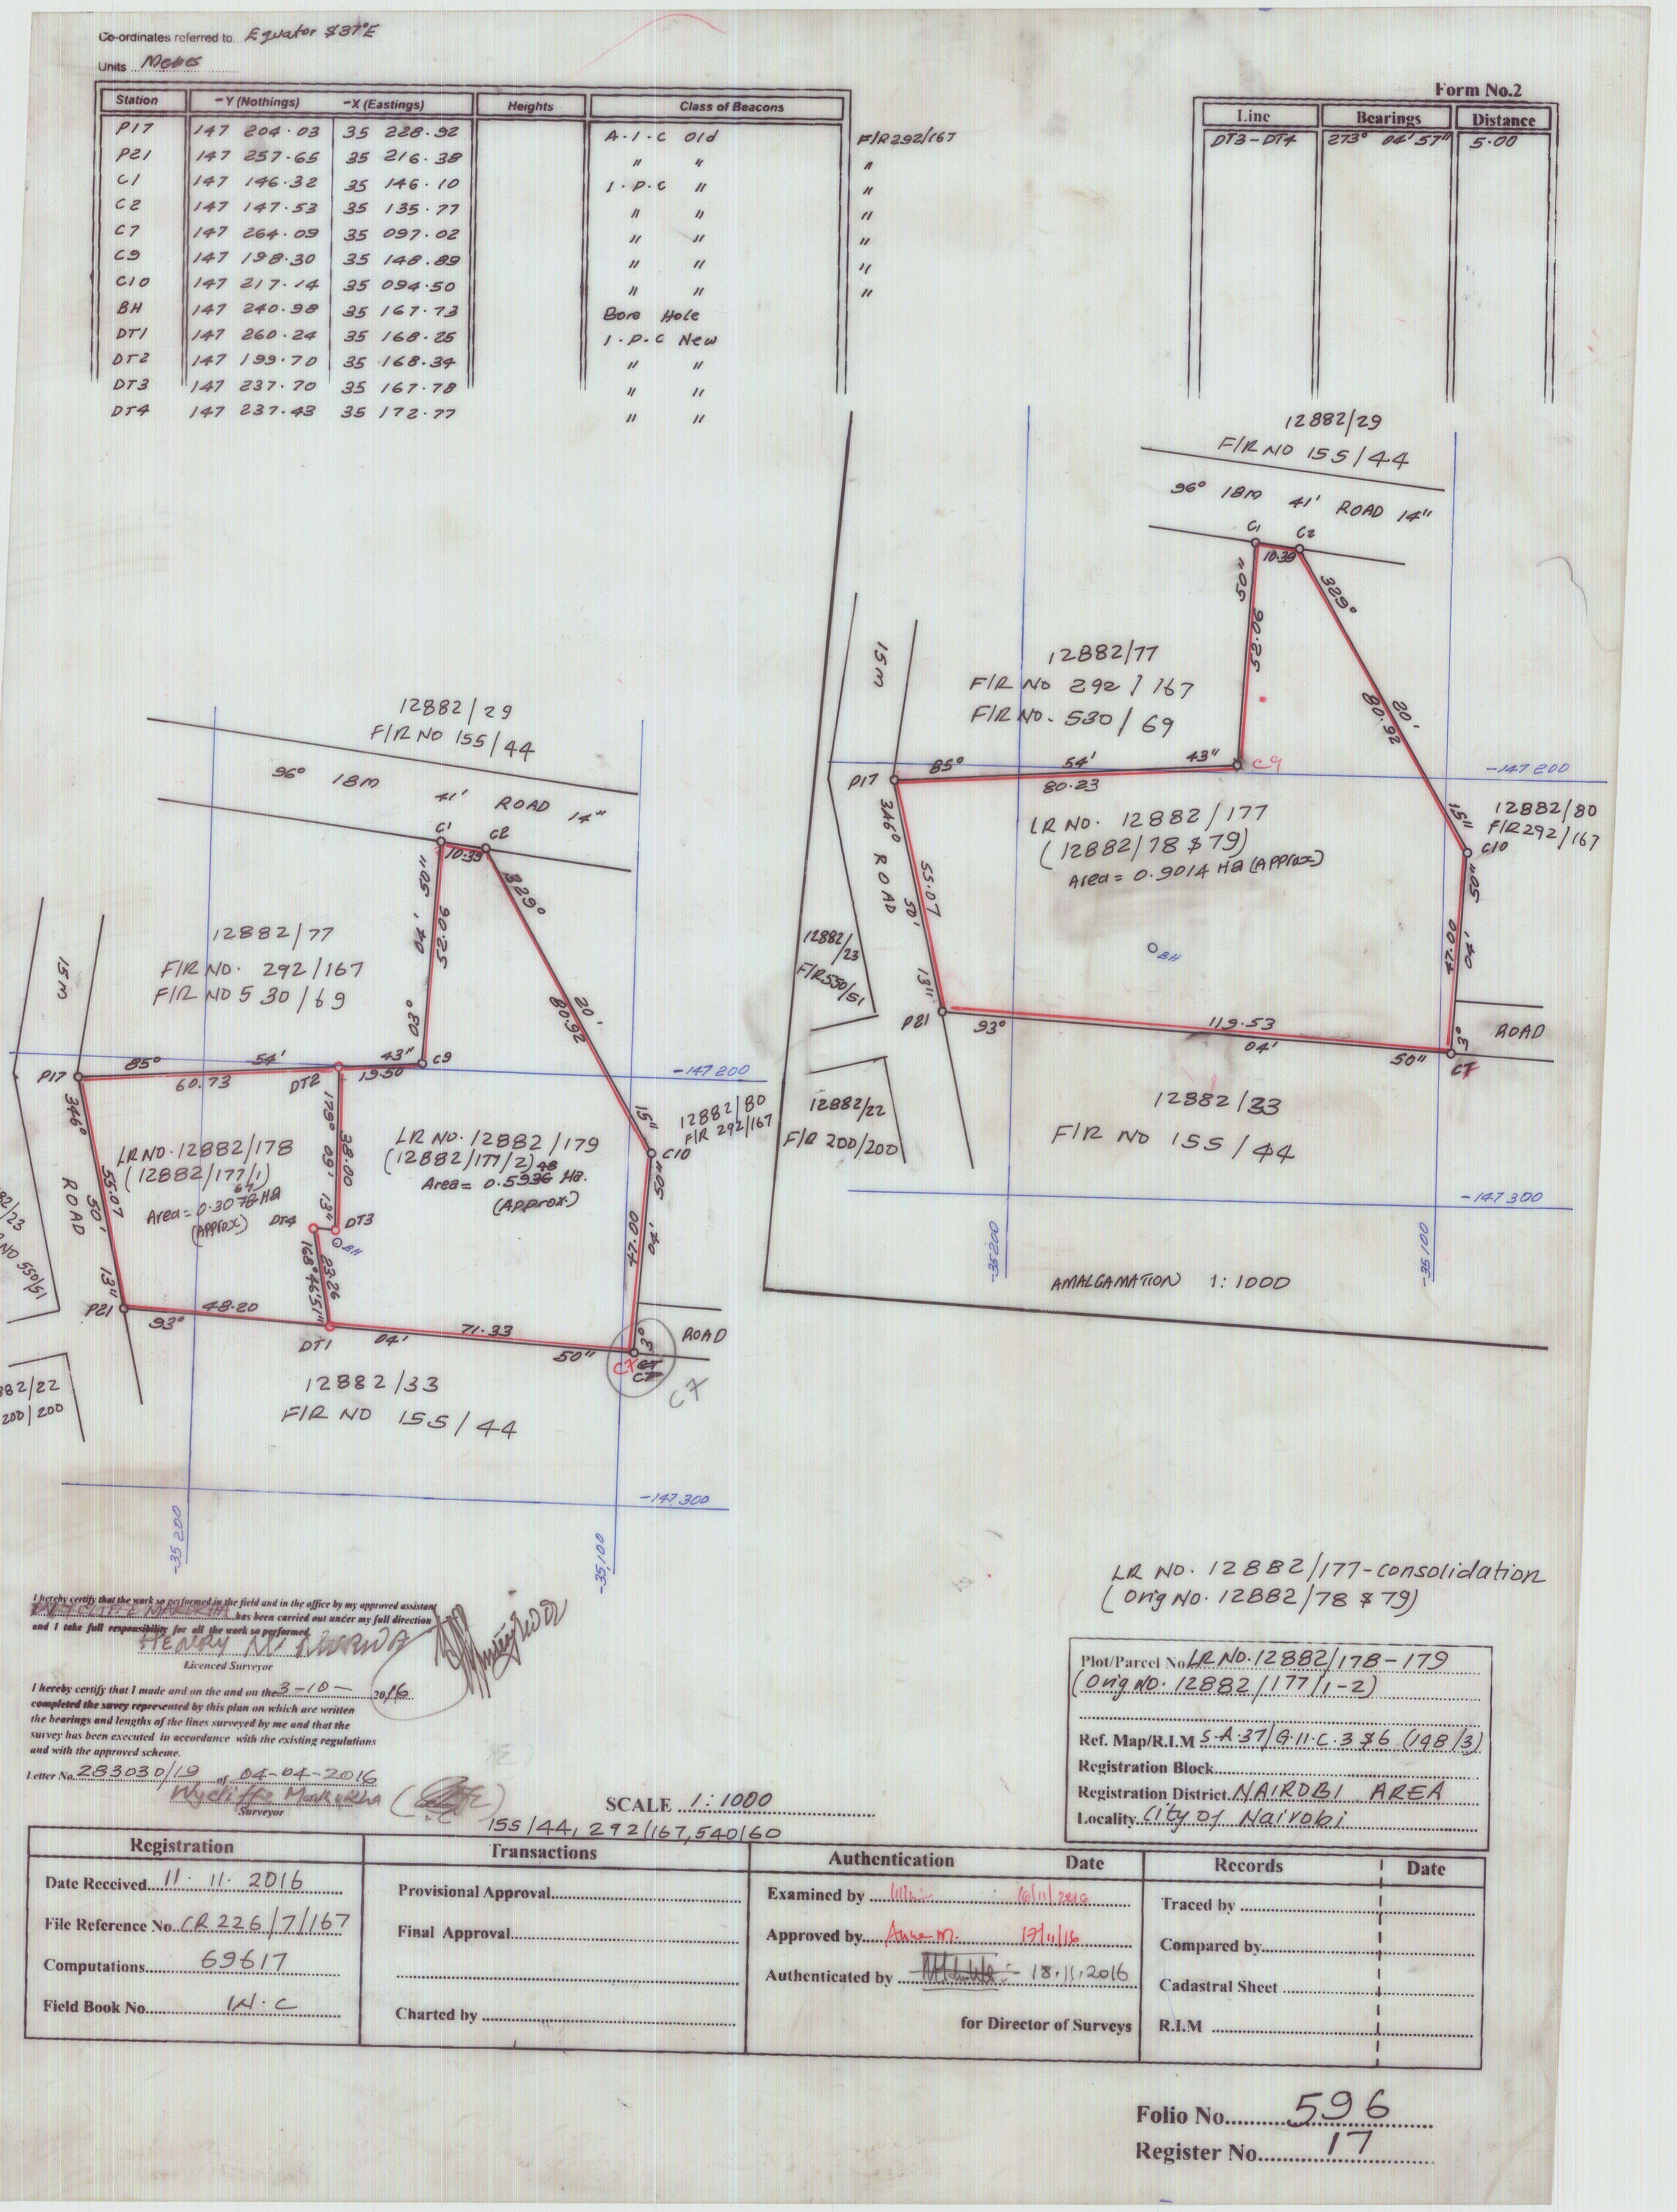 Co-ordinates referred to. Equator $ 37°E
Units Metres
Form No.2
Station -Y (Nothings) -X (Eastings) Heights Class of Beacons
P17 147 204.03 35 228.92 A.I.C Old F/R292/167
P21 147 257.65 35 216.38 " " "
C1 147 146.32 35 146.10 I.P.C " "
C2 147 147.53 35 135.77 " " "
C7 147 264.09 35 097.02 " " "
C9 147 198.30 35 148.89 " " "
C10 147 217.14 35 094.50 " " "
BH 147 240.98 35 167.73 Bore Hole
DT1 147 260.24 35 168.25 I.P.C New
DT2 147 199.70 35 168.34 " "
DT3 147 237.70 35 167.78 " "
DT4 147 237.43 35 172.77 " "
Line Bearings Distance
DT3-DT4 273° 04' 57" 5.00
12882/29
F/R NO 155/44
96° 18m 41' ROAD 14"
C1 C2
10.39
50"
52.06
329°
20'
80.92
15"
15m
12882/77
F/R NO 292/167
F/R NO. 530/69
P17 85° 54' 43" C9
80.23
-147 200
12882/80
F/R292/167
C10
LR NO. 12882/177
(12882/78 $ 79)
Area = 0.9014 Ha (Approx)
346°
ROAD
55.07
50'
13"
50"
04'
47.00
3°
12882/23
F/R550/51
BH
P21 93° 119.53 04' 50" C7
ROAD
12882/22
F/R 200/200
12882/33
F/R NO 155/44
-147 300
-35 200
-35 100
AMALGAMATION 1:1000
12882/29
F/R NO 155/44
96° 18m 41' ROAD 14"
C1 C2
10.39
50"
04'
52.06
03°
329°
20'
80.92
15"
12882/77
F/R NO. 292/167
F/R NO 530/69
15m
P17 85° 54' 43" C9
60.73 DT2 19.50
-147 200
12882/80
F/R 292/167
C10
LR NO. 12882/178
(12882/177/1)
67
Area = 0.3078 Ha
(Approx)
LR NO. 12882/179
(12882/177/2)
48
Area = 0.5936 Ha.
(Approx)
346°
ROAD
55.07
50'
13"
179° 09' 13"
38.00
DT4 DT3
BH
168° 46' 51"
23.26
50"
04'
47.00
3°
82/23
NO 550/51
P21 93° 48.20 DT1 04' 71.33 50"
C7 C7 C7
C7
ROAD
82/22
200/200
12882/33
F/R NO 155/44
-147 300
-35 200
-35,100
LR NO. 12882/177-consolidation
(Orig NO. 12882/78 $ 79)
I hereby certify that the work so performed in the field and in the office by my approved assistant
WYCLIFFE MARUKHA has been carried out under my full direction
and I take full responsibility for all the work so performed.
Licenced Surveyor
I hereby certify that I made and on the and on the 3-10- 2016
completed the suvey represented by this plan on which are written
the bearings and lengths of the lines surveyed by me and that the
survey has been executed in accordance with the existing regulations
and with the approved scheme.
Letter No. 283030/19 of 04-04-2016
Wycliffe Marukha
Surveyor
Plot/Parcel No LR NO. 12882/178-179
(Orig NO. 12882/177/1-2)
Ref. Map/R.I.M S.A.37/G.11.C.3 $ 6 (148/3)
Registration Block
Registration District. NAIROBI AREA
Locality. City of Nairobi
SCALE 1:1000
155/44, 292/167, 540/60
Registration
Date Received 11.11.2016
File Reference No. CR 226/7/167
Computations 69617
Field Book No. IN.C
Transactions
Provisional Approval
Final Approval
Charted by
Authentication Date
Examined by 16/11/2016
Approved by Anne M. 17/11/16
Authenticated by 18.11.2016
for Director of Surveys
Records Date
Traced by
Compared by
Cadastral Sheet
R.I.M
Folio No. 596
Register No. 17